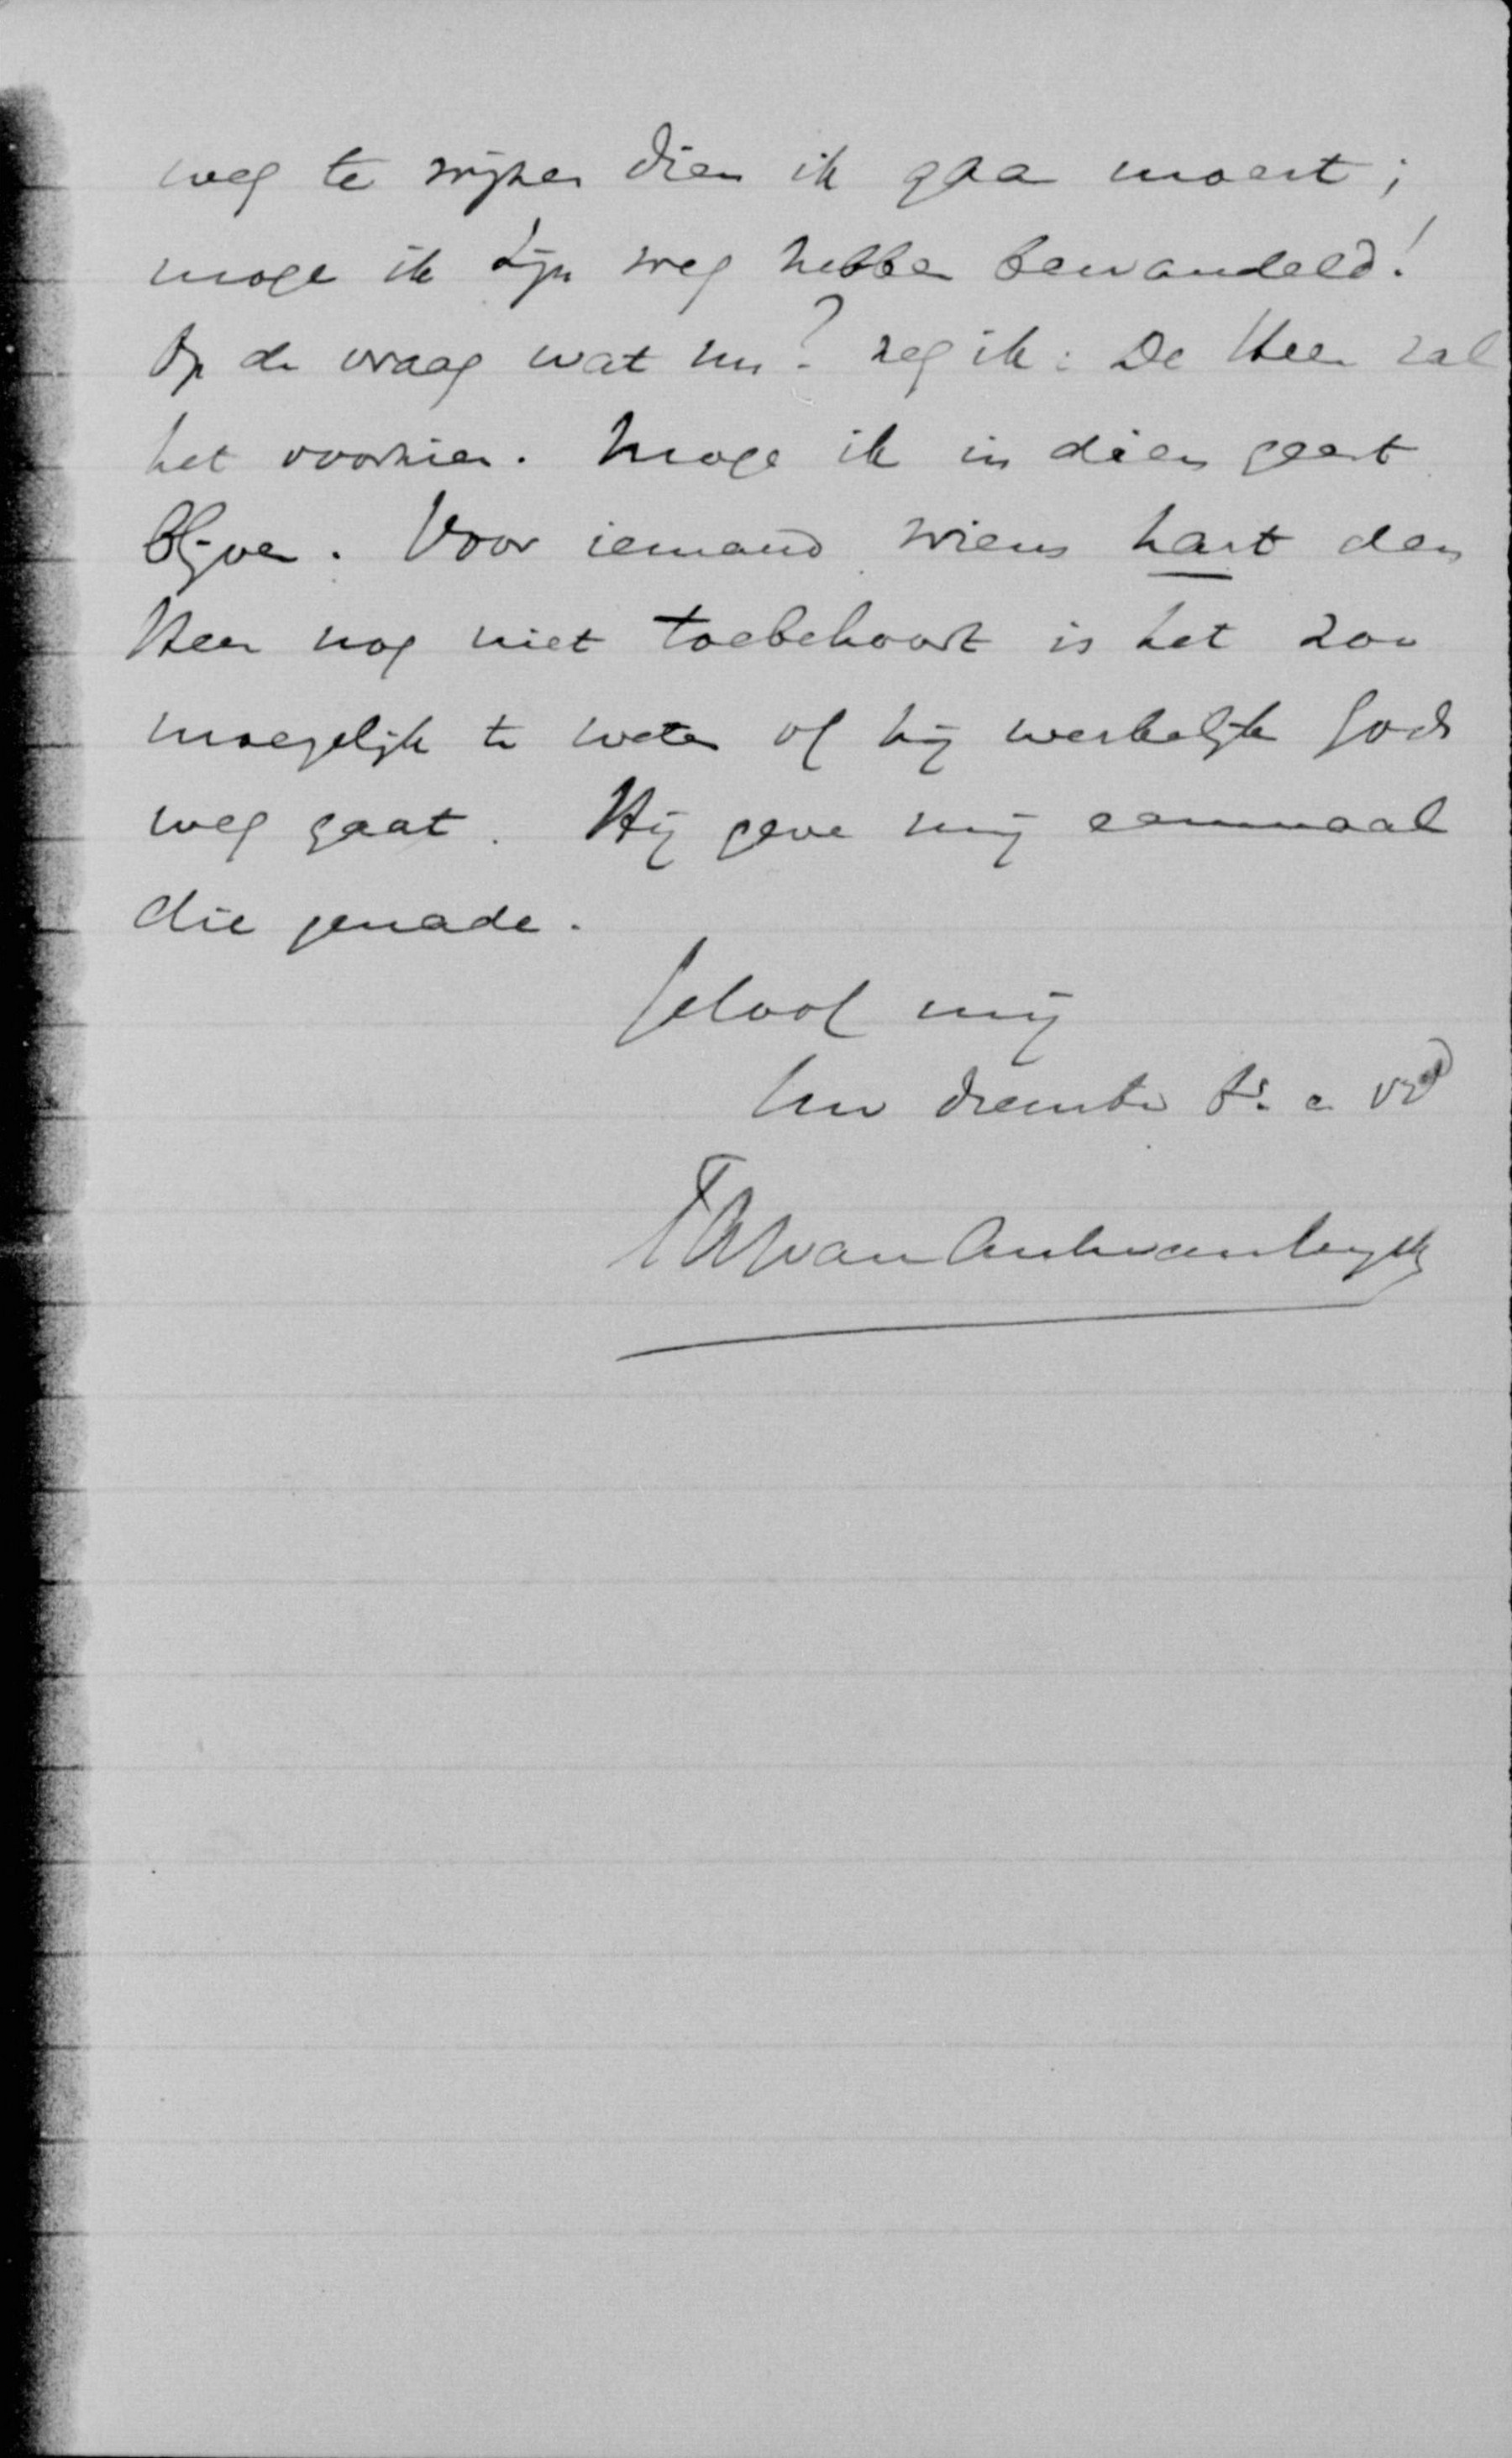 weg te wijzen dien ik gaan moest;
moge ik Zijn weg hebben bewandeld!
Op de vraag wat nu? zeg ik: De Heer zal
het voorzien. Moge ik in dien geest
blijven. Voor iemand wiens hart den
Heer nog niet toebehoort is het zoo
moeyelijk te weten of hij werkelijk Gods
weg gaat. Hij geve mij eenmaal
die genade.
Geloof mij
Uw dienstw. dr. en vrd